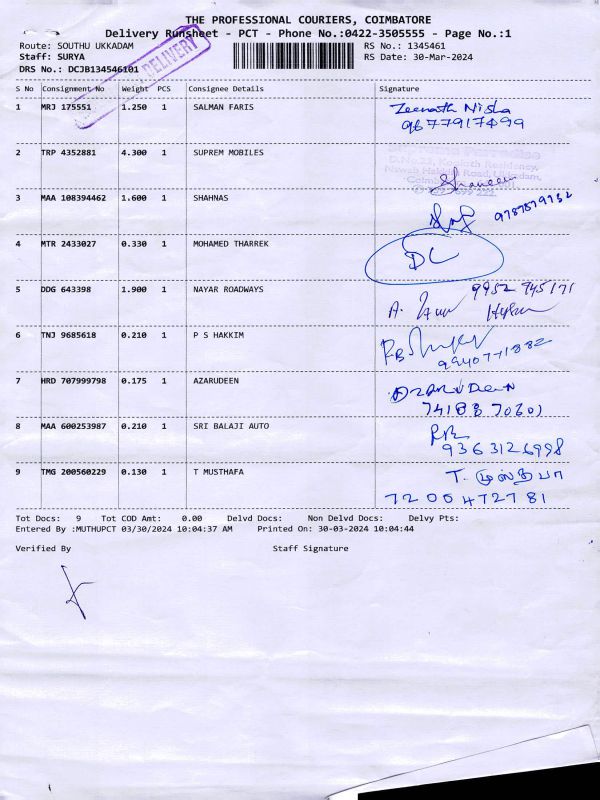 THE PROFESSIONAL COURIERS, COIMBATORE
Delivery Runsheet - PCT - Phone No.:0422-3505555 - Page No.:1
Route: SOUTHU UKKADAM
RS No.: 1345461
Staff: SURYA
RS Date: 30-Mar-2024
DRS No.: DCJB134546101
DELIVERY
S No Consignment No Weight PCS Consignee Details Signature
1 MRJ 175551 1.250 1 SALMAN FARIS Zeenath Nisha
9677917499
2 TRP 4352881 4.300 1 SUPREM MOBILES
Road, Ukkadam,
Shameem
3 MAA 108394462 1.600 1 SHAHNAS
4 MTR 2433027 0.330 1 MOHAMED THARREK DL
5 DDG 643398 1.900 1 NAYAR ROADWAYS 9952 745171
A.
6 TNJ 9685618 0.210 1 P S HAKKIM
7 HRD 707999798 0.175 1 AZARUDEEN
8 MAA 600253987 0.210 1 SRI BALAJI AUTO
9363126998
9 TMG 200560229 0.130 1 T MUSTHAFA T. முஸ்தபா
7200472781
Tot Docs: 9 Tot COD Amt: 0.00 Delvd Docs: Non Delvd Docs: Delvy Pts:
Entered By :MUTHUPCT 03/30/2024 10:04:37 AM Printed On: 30-03-2024 10:04:44
Verified By Staff Signature